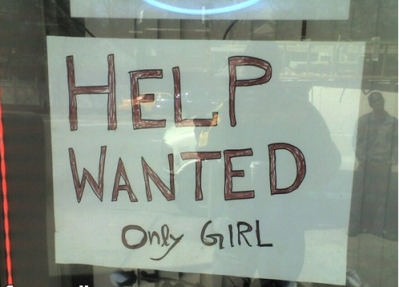 HELP
WANTED
Only GIRL